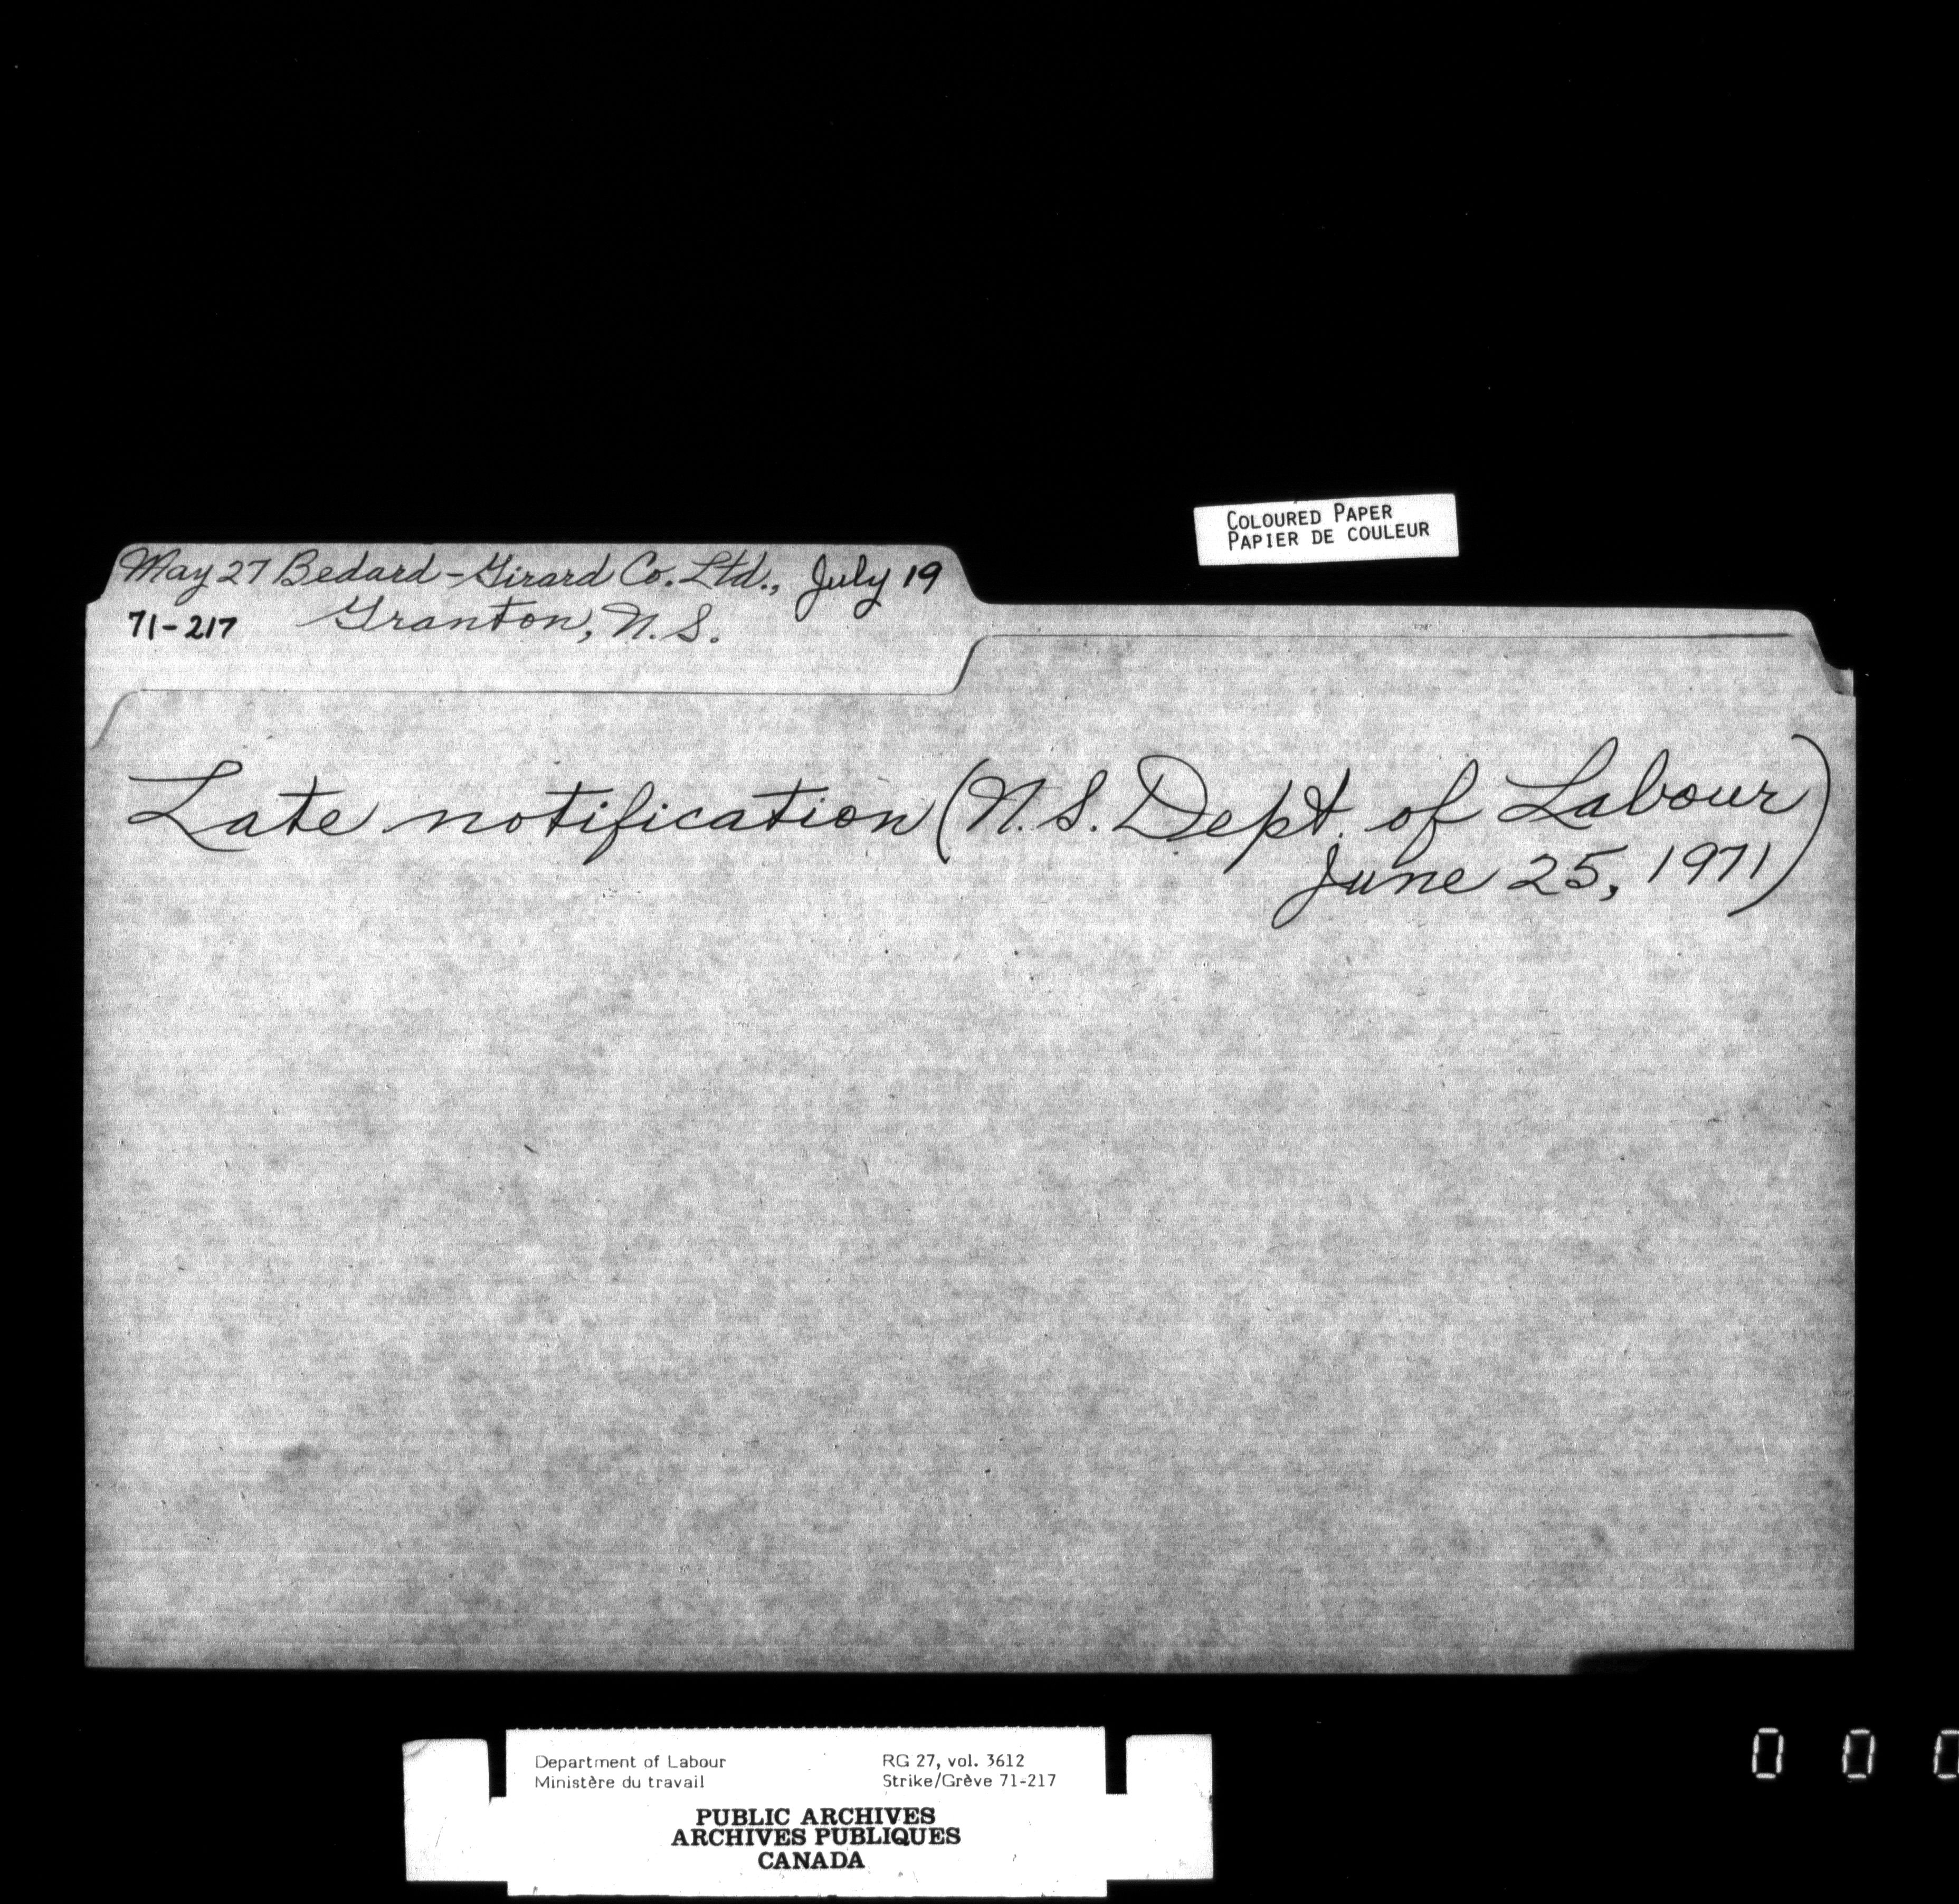 COLOURED PAPER
PAPIER DE COULEUR
May 27 Bedard-Girard Co. Ltd., July 19
71-217 Granton, N.S.
Late notification (N.S. Dept. of Labour)
June 25, 1971
Department of Labour RG 27, vol. 3612
Ministère du travail Strike/Grève 71-217
PUBLIC ARCHIVES
ARCHIVES PUBLIQUES
CANADA
0 0 0